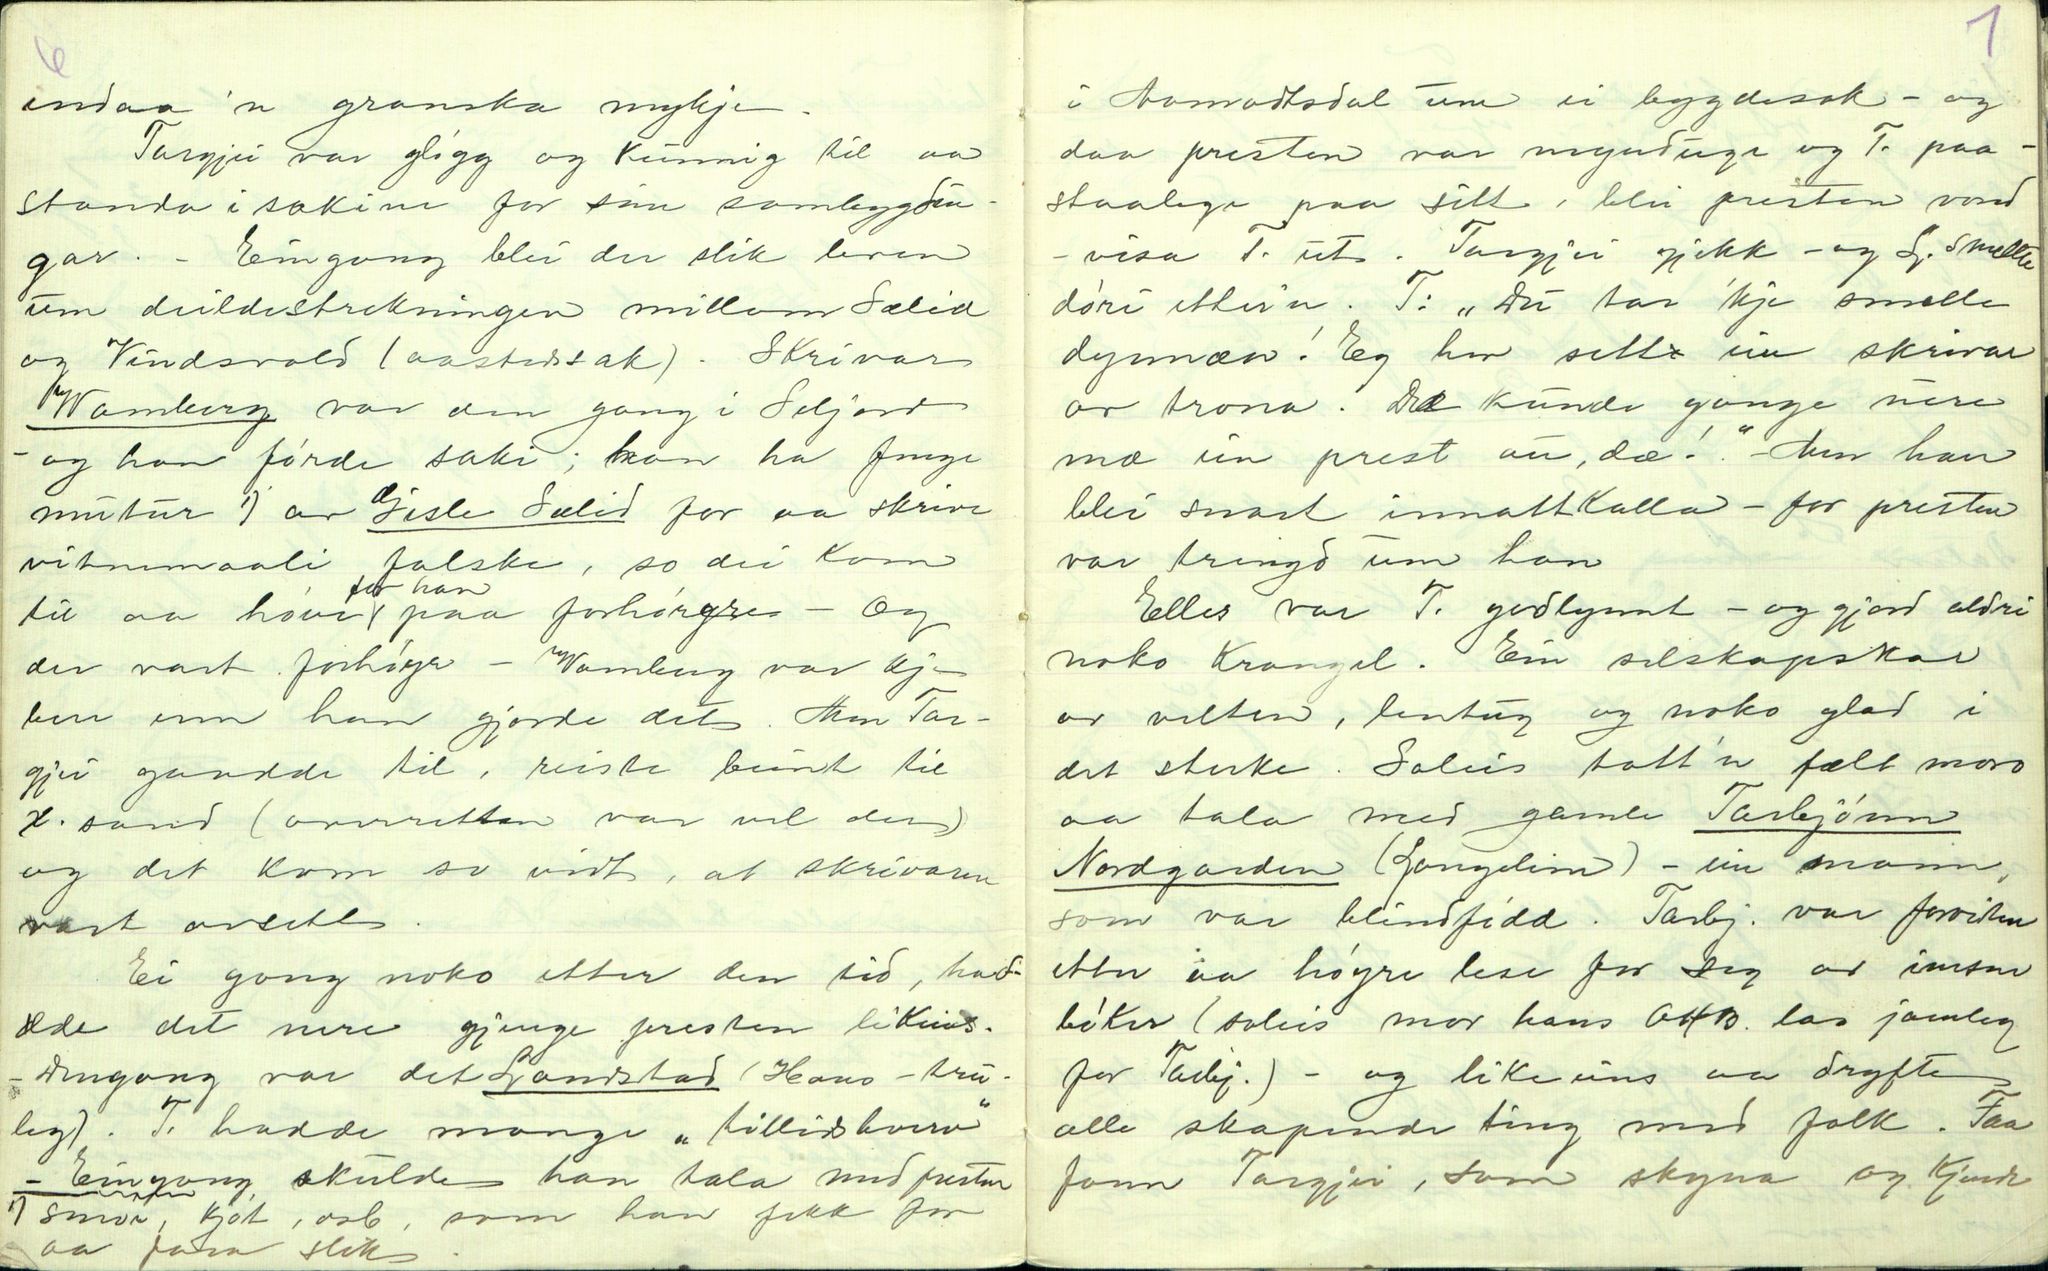 6
endaa 'n granska mykje.
Targjei var gløgg og kunnig til aa
standa i sakine for sine sambygdin-
gar. - Eingong blei der slik leven
um deildestrekningen millom Sælid
og Vindsvald (aastedssak). Skrivar
Wamberg var den gong i Seljord
- og han førde saki; han ha fenge
mutur 1) av Gisle Sælid for aa skrive
vitnemaali falske, so dei kom
til aa høve for han paa forhøyre - Og
der vart forhøyr - Wamberg var kje
bere enn han gjorde det. Men Tar-
gjei gandde til, reiste beint til
X.sand (overretten var vel der)
og det kom so vidt, at skrivaren
vart avsett.
Ei gong noko etter den tid, had-
de det nere gjenge presten likeins.
- Dengong var det Landstad (Hans - tru-
leg). T. hadde mange „tillidshverv"
- Eingong skulde han tala med presten
1) smør, kjøt, osb, som han fekk for
aa fara slik.
7
i Aamodtsdal um ei bygdesak - og
daa presten var mynduge og T. paa-
staalege paa sitt, blei presten vond
- visa T. ut. Targjei gjekk - og L. smellte
døri etter'n. T: „Du tar 'kje smelle
dynnæn! Eg hev sett ein skrivar
av trona. Dæ kunde gange nere
mæ ein prest au, dæ!." - Men han
blei snart innatt kalla - for presten
var tringd um han
Elles var T. godlynnt - og gjord aldri
noko krangel. Ein selskapskar
av velten, lentug og noko glad i
det sterke. Soleis tott'n fælt moro
aa tala med gamle Tarbjønn
Nordgarden (Langelim) - ein mann,
som var blindfødd. Tarbj. var forviten
etter aa høyre lese for seg av imsne
bøker (soleis mor hans OHB. las jamleg
for Tarbj.) - og likeeins aa drøfte
alle skapende ting med folk. Faa
fann Targjei, som skyna og kjende